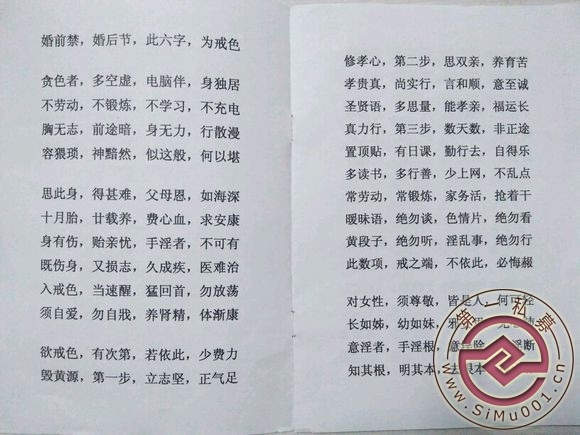 婚前禁，婚后节，此六字，为戒色
贪色者，多空虚，电脑伴，身独居
不劳动，不锻炼，不学习，不充电
胸无志，前途暗，身无力，行散漫
容猥琐，神黯然，似这般，何以堪
思此身，得甚难，父母恩，如海深
十月胎，廿载养，费心血，求安康
身有伤，贻亲忧，手淫者，不可有
既伤身，又损志，久成疾，医难治
入戒色，当速醒，猛回首，勿放荡
须自爱，勿自戕，养肾精，体渐康
欲戒色，有次第，若依此，少费力
毁黄源，第一步，立志坚，正气足
修孝心，第二步，思双亲，养育苦
孝贵真，尚实行，言和顺，意至诚
圣贤语，多思量，能孝亲，福运长
真力行，第三步，数天数，非正途
置顶贴，有日课，勤行去，自得乐
多读书，多行善，少上网，不乱点
常劳动，常锻炼，家务活，抢着干
暧昧语，绝勿谈，色情片，绝勿看
黄段子，绝勿听，淫乱事，绝勿行
此数项，戒之端，不依此，必悔赧
对女性，须尊敬，皆是人，何可轻
长如姊，幼如妹，邪
意淫者，手淫根，意淫除，淫断
知其根，明其本，去根本
第一私募
www.SiMu001.cn